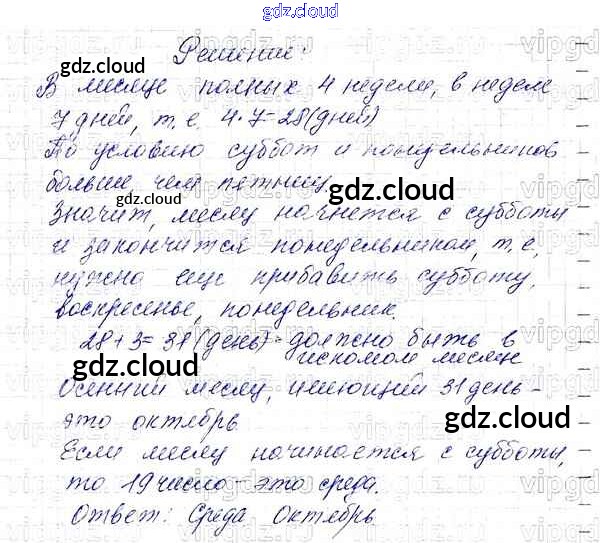 gdz.cloud
Решение:
gdz.cloud
В месяце полных 4 недели, в неделе
7 дней, т.е. 4·7=28(дней)
По условию суббот и понедельников
больше чем пятниц
gdz.cloud
Значит, месяц начнется с субботы
и закончится понедельником, т.е,
нужно еще прибавить субботу,
воскресенье, понедельник.
28+3=31(день)-должно быть в
искомом месяце
gdz.cloud
Осенний месяц, имеющий 31 день-
это октябрь
gdz.cloud
Если месяц начинается с субботы,
то 19 число-это среда.
gdz.cloud
Ответ: Среда Октябрь